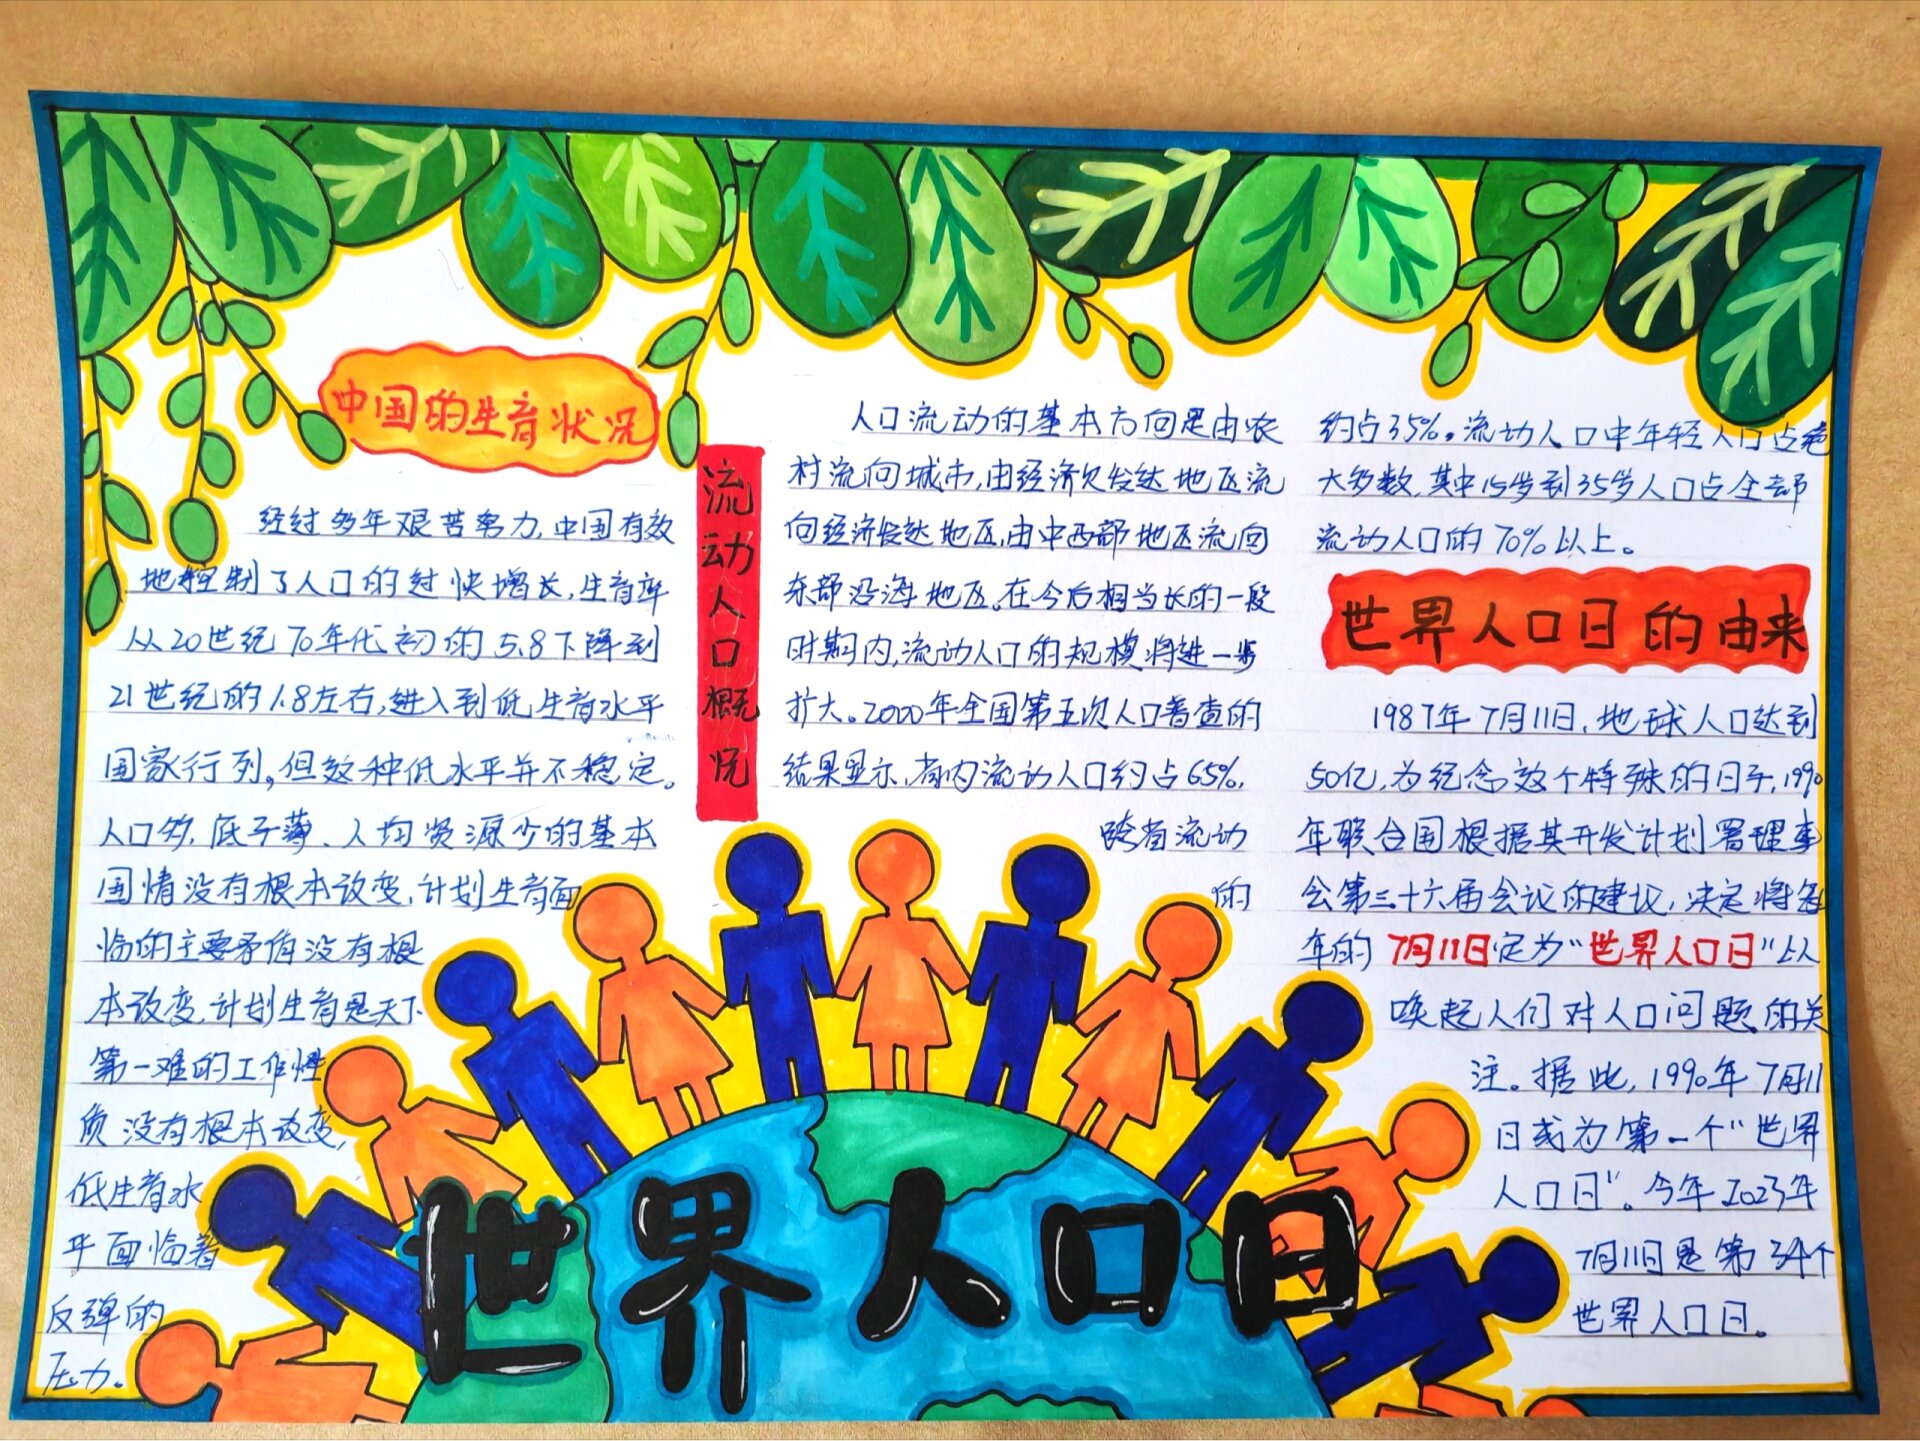 中国的生育状况
经过多年艰苦努力,中国有效
地控制了人口的过快增长,生育率
从20世纪70年代初的5.8下降到
21世纪的1.8左右,进入到低生育水平
国家行列。但这种低水平并不稳定。
人口多、底子薄、人均资源少的基本
国情没有根本改变,计划生育面
临的主要矛盾没有根
本改变,计划生育是天下
第一难的工作性
质没有根本改变,
低生育水
平面临着
反弹的
压力。
流动人口概况
人口流动的基本方向是由农
村流向城市,由经济欠发达地区流
向经济发达地区,由中西部地区流向
东部沿海地区。在今后相当长的一段
时期内,流动人口的规模将进一步
扩大。2000年全国第五次人口普查的
结果显示,省内流动人口约占65%,
跨省流动
的
约占35%。流动人口中年轻人口占绝
大多数,其中15岁到35岁人口占全部
流动人口的70%以上。
世界人口日的由来
1987年7月11日,地球人口达到
50亿,为纪念这个特殊的日子,1990
年联合国根据其开发计划署理事
会第三十六届会议的建议,决定将每
年的7月11日定为“世界人口日”以
唤起人们对人口问题的关
注。据此,1990年7月11
日成为第一个“世界
人口日”。今年2023年
7月11日是第34个
世界人口日。
世界人口日